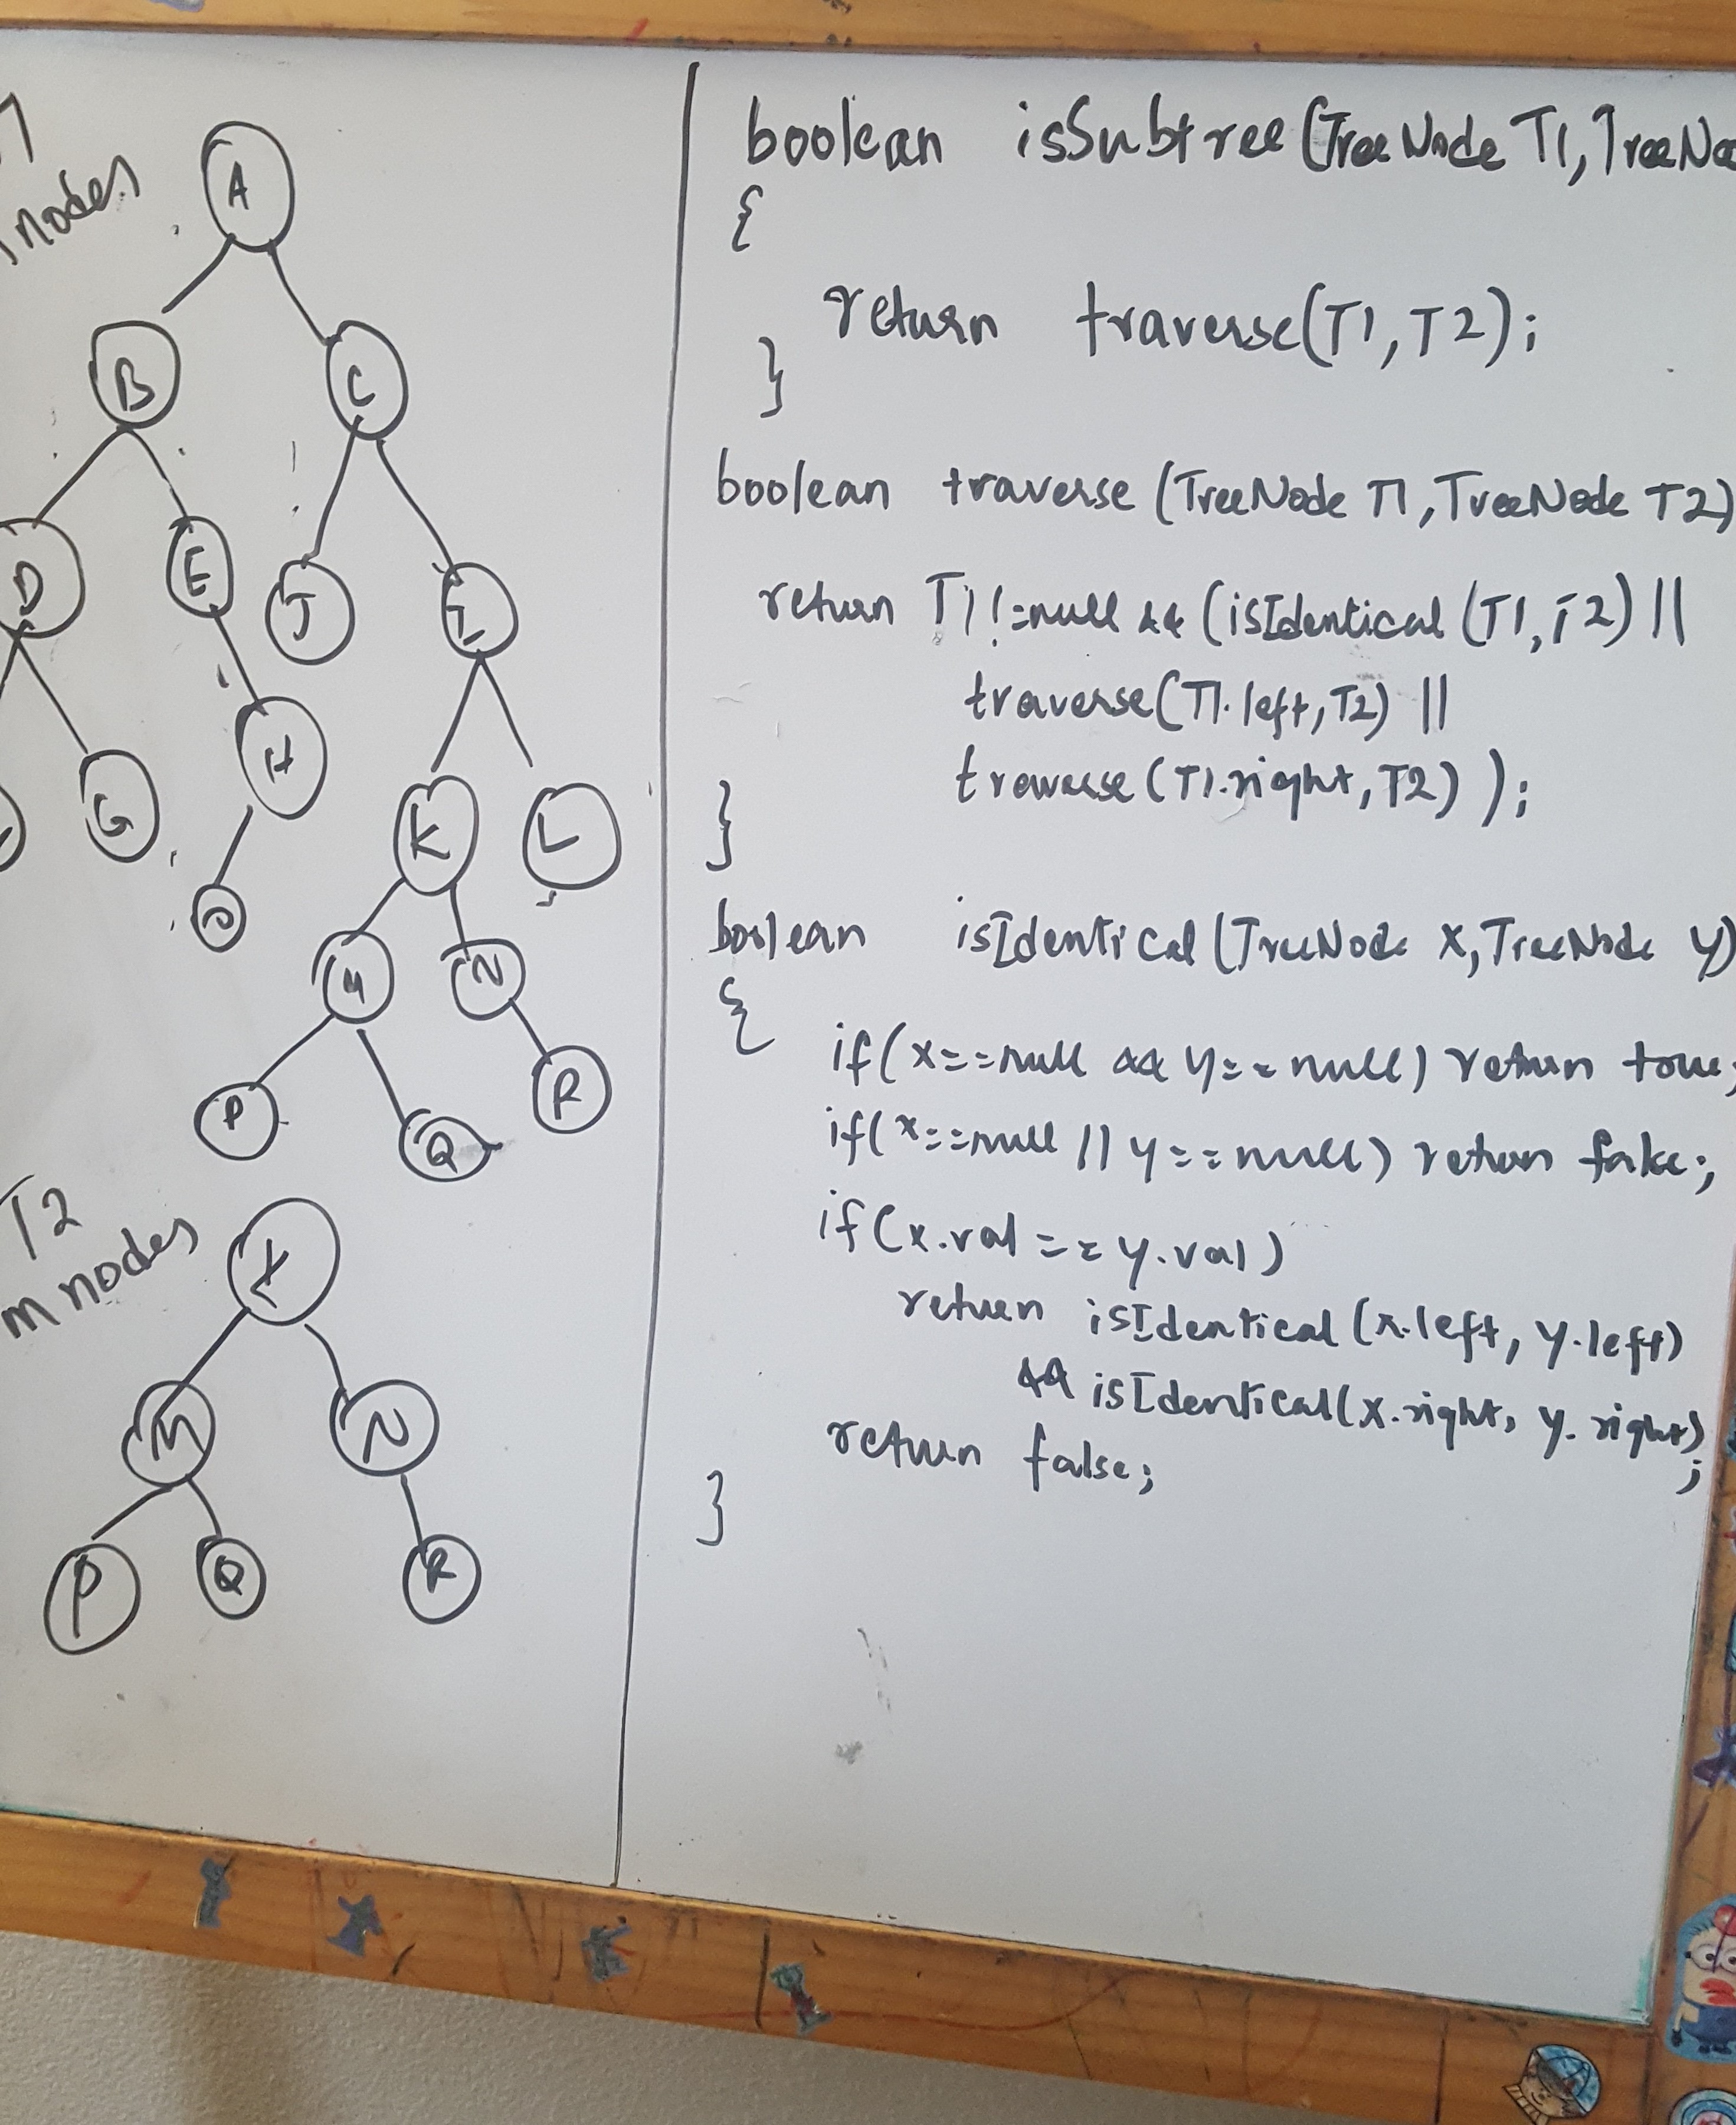 nodes
A
B
C
D
E
J
I
G
H
K
L
O
M
N
P
Q
R
T2
m nodes
K
M
N
P
Q
R
boolean isSubtree (TreeNode T1, TreeNo
{
return traverse(T1, T2);
}
boolean traverse (TreeNode T1, TreeNode T2)
return T1 != null && (isIdentical (T1, T2) ||
traverse(T1.left, T2) ||
traverse (T1.right, T2) );
}
boolean isIdentical (TreeNode x, TreeNode y)
{
if(x==null && y==null) return true;
if(x==null || y==null) return false;
if(x.val == y.val)
return isIdentical (x.left, y.left)
&& isIdentical(x.right, y.right)
;
return false;
}